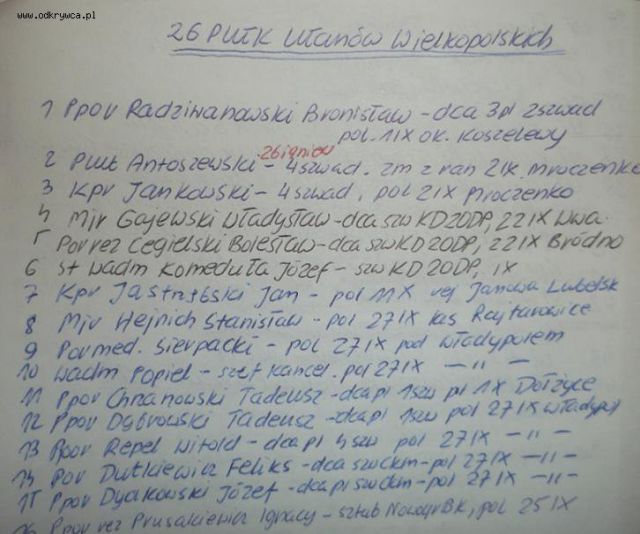 www.odkrywca.pl
26 Pułk Ułanów Wielkopolskich
1 Ppor Radziwanowski Bronisław - dca 3pl 2szwad
pol. 1 IX ok. Koszelewy
Zbigniew
2 Plut Antoszewski - 4 szwad. zm z ran 2 IX Mroczenko
3 Kpr Jankowski - 4 szwad, pol 2 IX Mroczenko
4 Mjr Gajewski Władysław - dca szw KD 20DP, 22 IX Wwa
5 Por rez Cegielski Bolesław - dca szw KD 20DP, 22 IX Bródno
6 St wachm Komeduła Józef - szw KD 20DP, IX
7 Kpr Jastrzębski Jan - pol 1 IX rej Janowa Lubelsk
8 Mjr Hejnich Stanisław - pol 27 IX las Rajtarowice
9 Por med. Sierpacki - pol 27 IX pod Władypolem
10 Wachm Popiel - szef kancel. pol 27 IX - " -
11 Ppor Chnanowski Tadeusz - dca pl 1szw pl 1 X Dołżyce
12 Ppor Dąbrowski Tadeusz - dca pl 1szw pol 27 IX Władypol
13 Ppor Repel Witold - dca pl 4 szw pol 27 IX - " -
14 Por Dutkiewicz Feliks - dca szw ckm - pol 27 IX - " -
15 Ppor Dyakowski Józef - dca pl szw ckm - pol 27 IX - " -
16 Ppor rez Prusakiewicz Ignacy - sztab Nowogr BK, pol 25 IX